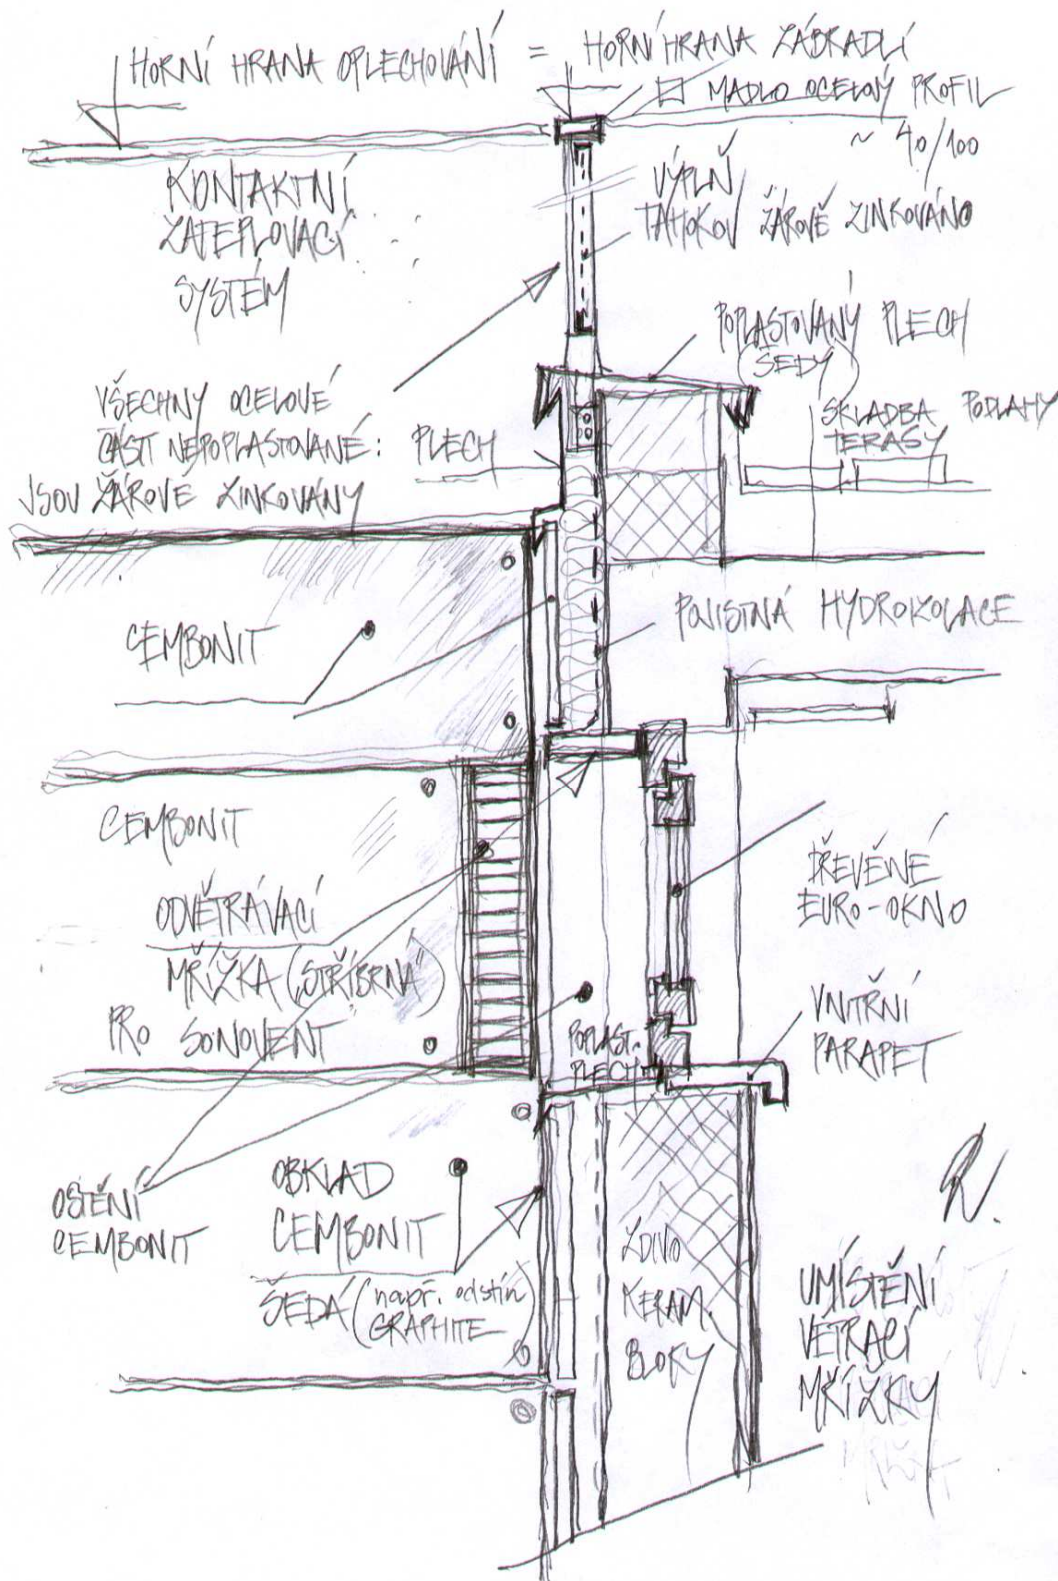 HORNÍ HRANA OPLECHOVÁNÍ = HORNÍ HRANA ZÁBRADLÍ
MADLO OCELOVÝ PROFIL
~ 40/100
KONTAKTNÍ
ZATEPLOVACÍ
SYSTÉM
VÝPLŇ
TAHOKOV ŽÁROVĚ ZINKOVÁNO
POPLASTOVANÝ PLECH
(ŠEDÝ)
VŠECHNY OCELOVÉ
ČÁSTI NEPOPLASTOVANÉ:
JSOU ŽÁROVĚ ZINKOVÁNY
PLECH
SKLADBA PODLAHY
TERASY
CEMBONIT
POJISTNÁ HYDROIZOLACE
CEMBONIT
ODVĚTRÁVACÍ
MŘÍŽKA („STŘÍBRNÁ“)
PRO SONOVENT
DŘEVĚNÉ
EURO-OKNO
VNITŘNÍ
PARAPET
POPLAST.
PLECH
OSTĚNÍ
CEMBONIT
OBKLAD
CEMBONIT
ŠEDÁ (např. odstín
GRAPHITE)
ZDIVO
KERAM.
BLOKY
UMÍSTĚNÍ
VĚTRACÍ
MŘÍŽKY